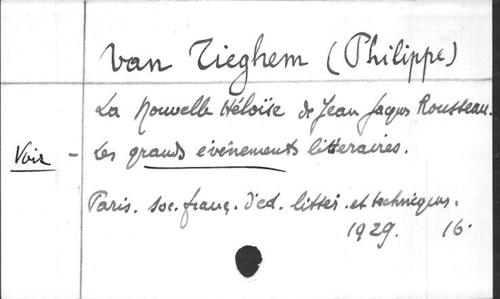 van Tieghem (Philippe)
La Nouvelle Héloïse de Jean Jacques Rousseau.
Voir - Les grands événements littéraires.
Paris. Soc. franç. d'éd. littér. et techniques.
1929. 16.